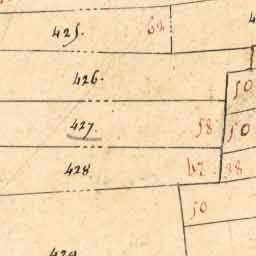 425. 62 4
426. 50
427. 58 50
428 38
50
429